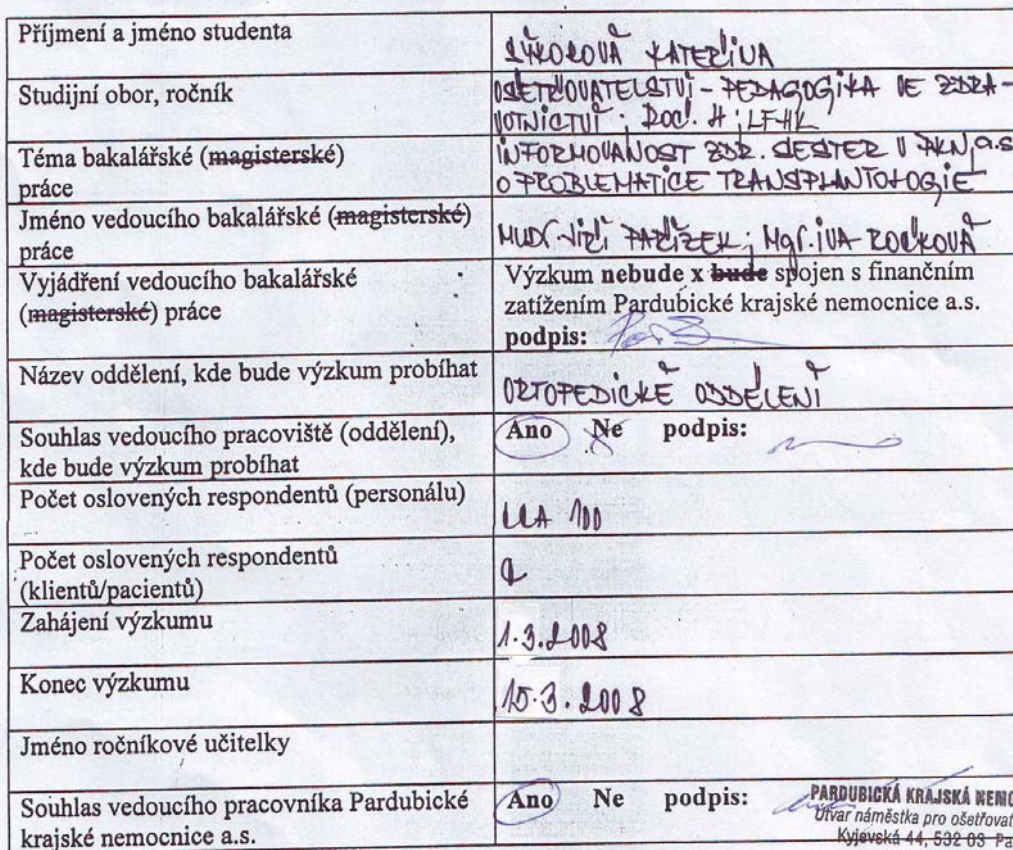 Příjmení a jméno studenta
SÝKOROVÁ KATEŘINA
Studijní obor, ročník
OŠETŘOVATELSTVÍ - PEDAGOGIKA VE ZDRA-
VOTNICTVÍ; ROČ. ; LFHK
Téma bakalářské (magisterské)
práce
INFORMOVANOST ZDR. SESTER V PKN, a.s
O PROBLEMATICE TRANSPLANTOLOGIE
Jméno vedoucího bakalářské (magisterské)
práce
MUDr. JIŘÍ PAŘÍZEK; Mgr. IVA
Vyjádření vedoucího bakalářské
(magisterské) práce
Výzkum nebude x bude spojen s finančním
zatížením Pardubické krajské nemocnice a.s.
podpis:
Název oddělení, kde bude výzkum probíhat
ORTOPEDICKÉ ODDĚLENÍ
Souhlas vedoucího pracoviště (oddělení),
kde bude výzkum probíhat
Ano Ne podpis:
Počet oslovených respondentů (personálu)
CCA 100
Počet oslovených respondentů
(klientů/pacientů)
Zahájení výzkumu
1.3.2008
Konec výzkumu
15.3.2008
Jméno ročníkové učitelky
Souhlas vedoucího pracovníka Pardubické
krajské nemocnice a.s.
Ano Ne podpis:
PARDUBICKÁ KRAJSKÁ NEMO
Útvar náměstka pro ošetřovat
Kyjevská 44, 532 03 Pa